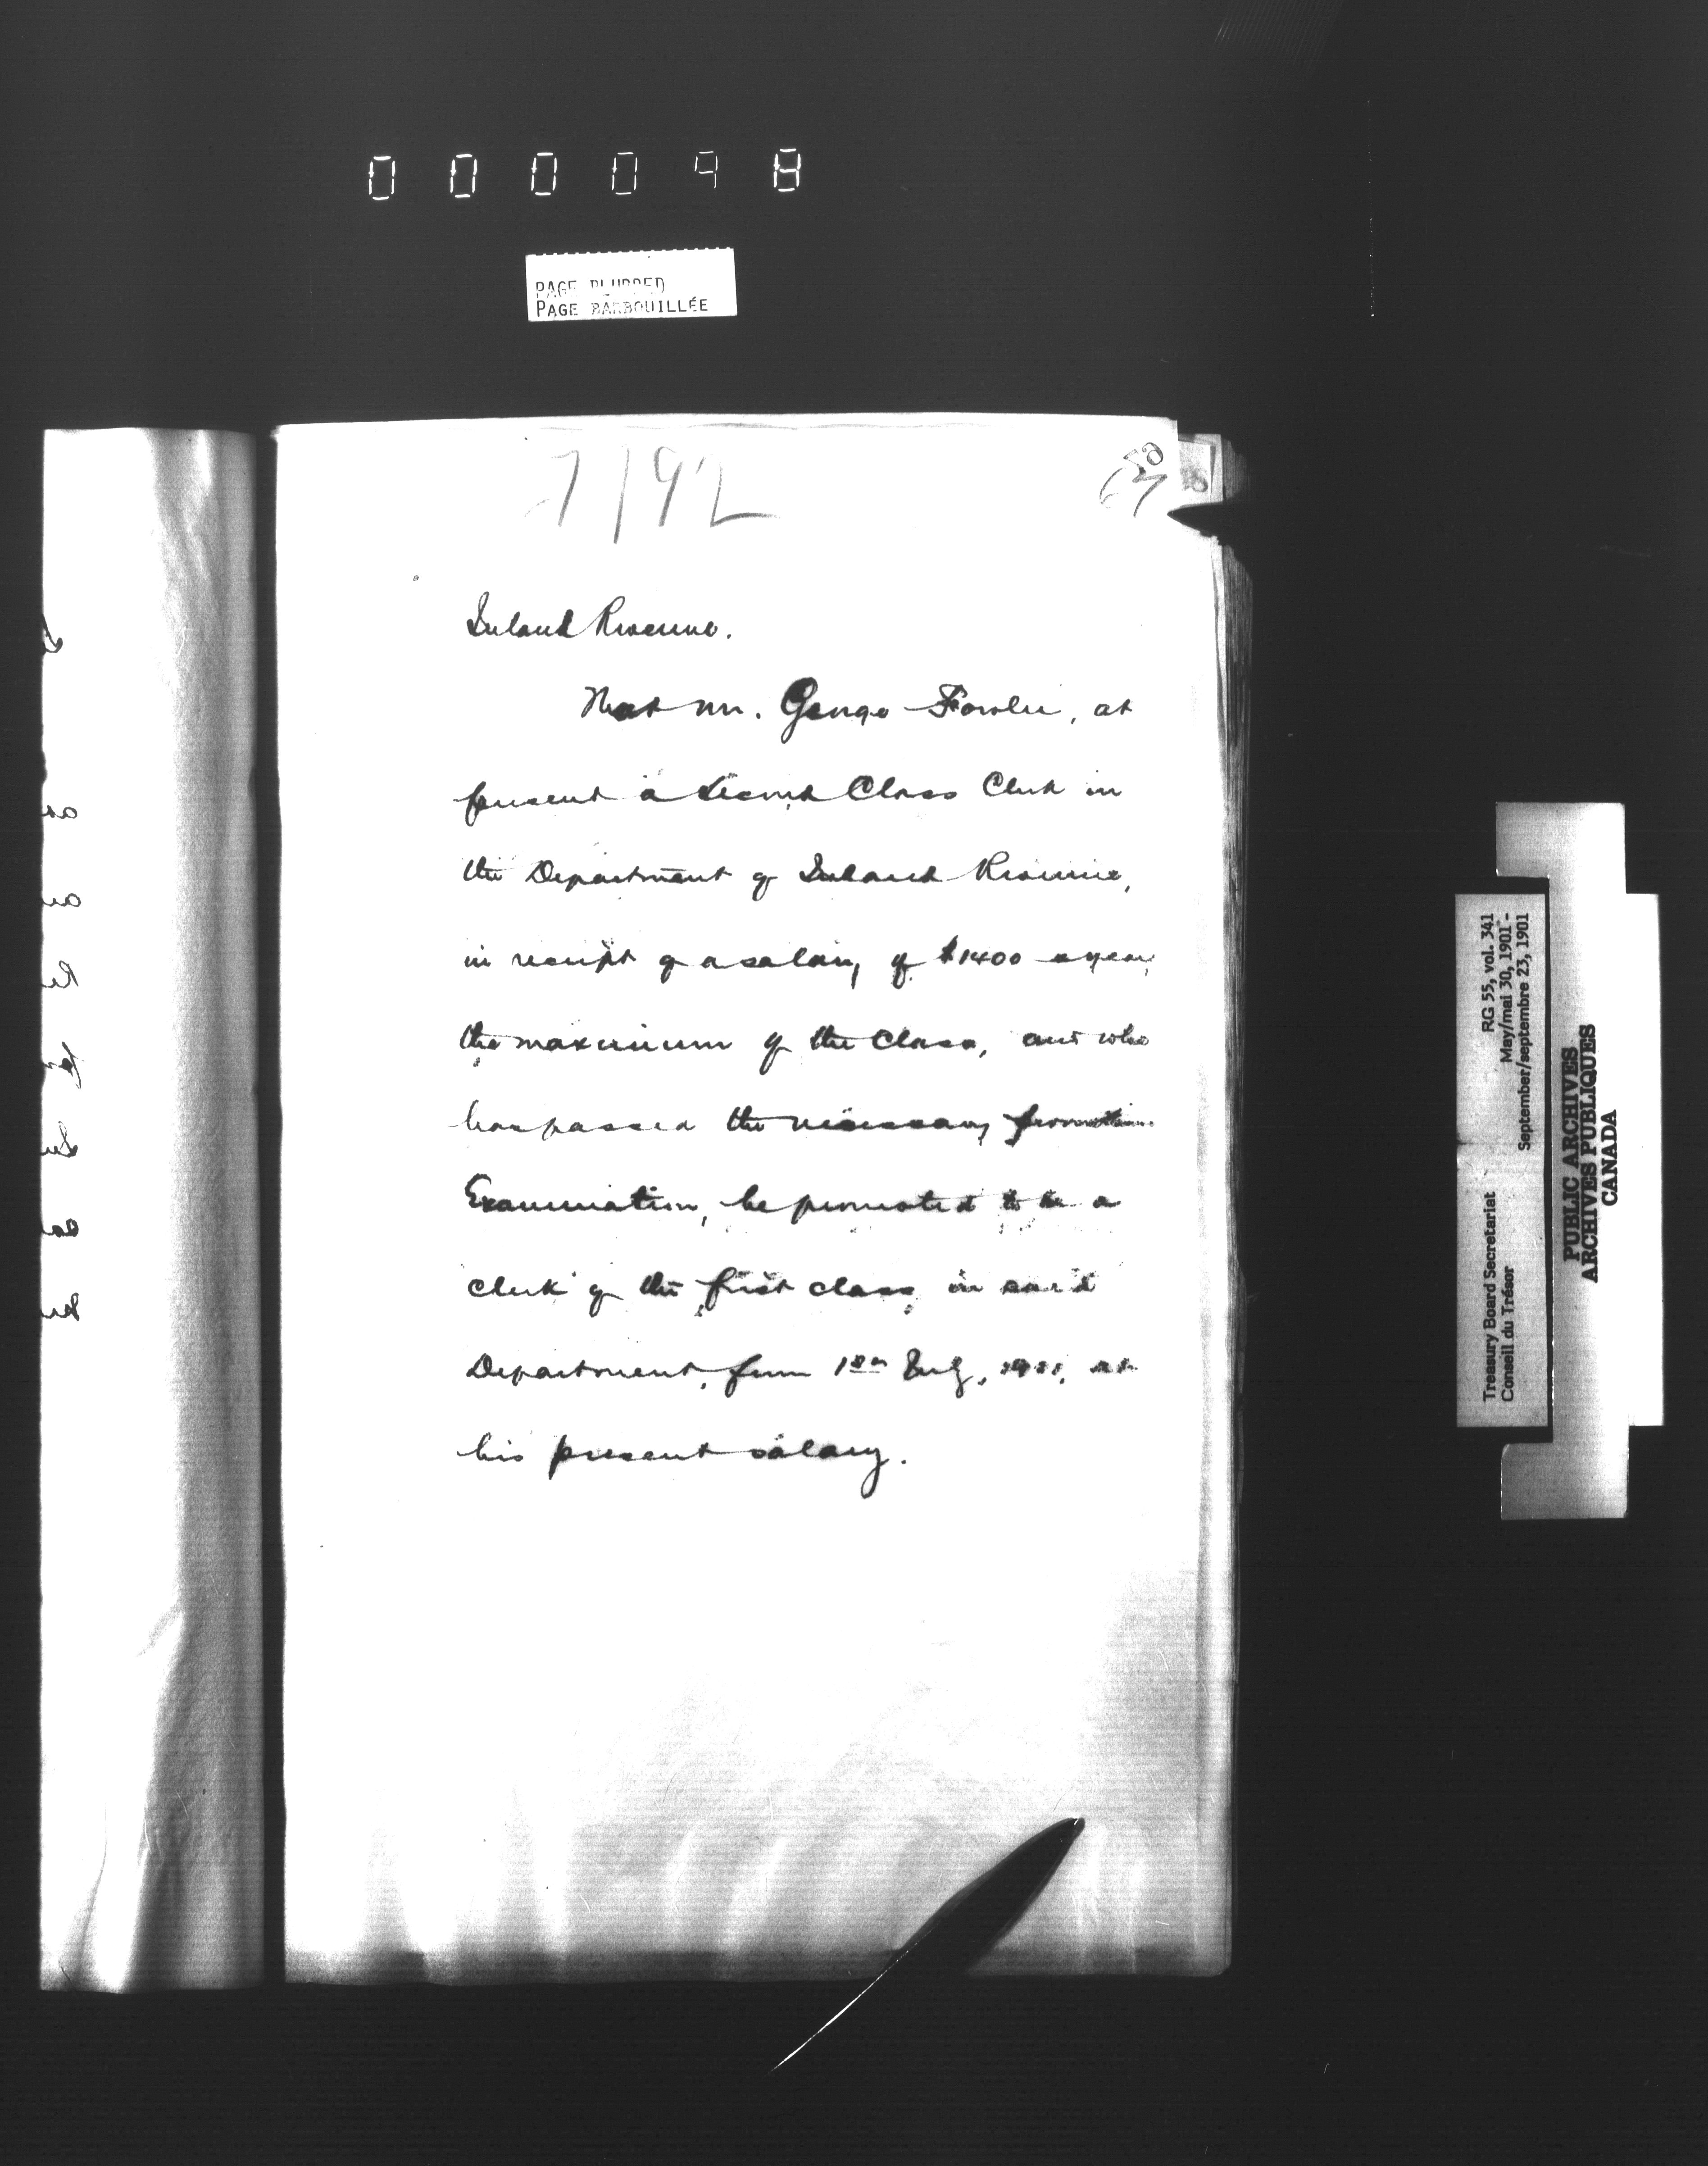 000098
PAGE BLURRED
PAGE BARBOUILLÉE
7192
67
Inland Revenue.
That Mr. George Fowler, at
present a Second Class Clerk in
the Department of Inland Revenue,
in receipt of a salary of $1400 a year,
the maximum of the Class, and who
has passed the necessary promotion
Examination, be promoted to be a
clerk of the first class, in said
Department, from 1st July, 1901, at
his present salary.
Treasury Board Secretariat RG 55, vol. 341
Conseil du Trésor May/mai 30, 1901 -
September/septembre 23, 1901
PUBLIC ARCHIVES
ARCHIVES PUBLIQUES
CANADA